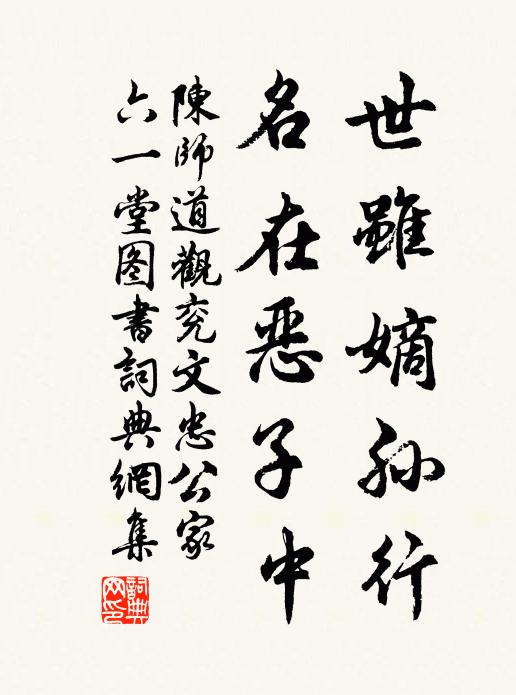 世雖嫡孫行
名在惡子中
陳師道觀兖文忠公家
六一堂图書詞典網集
詞典
网印